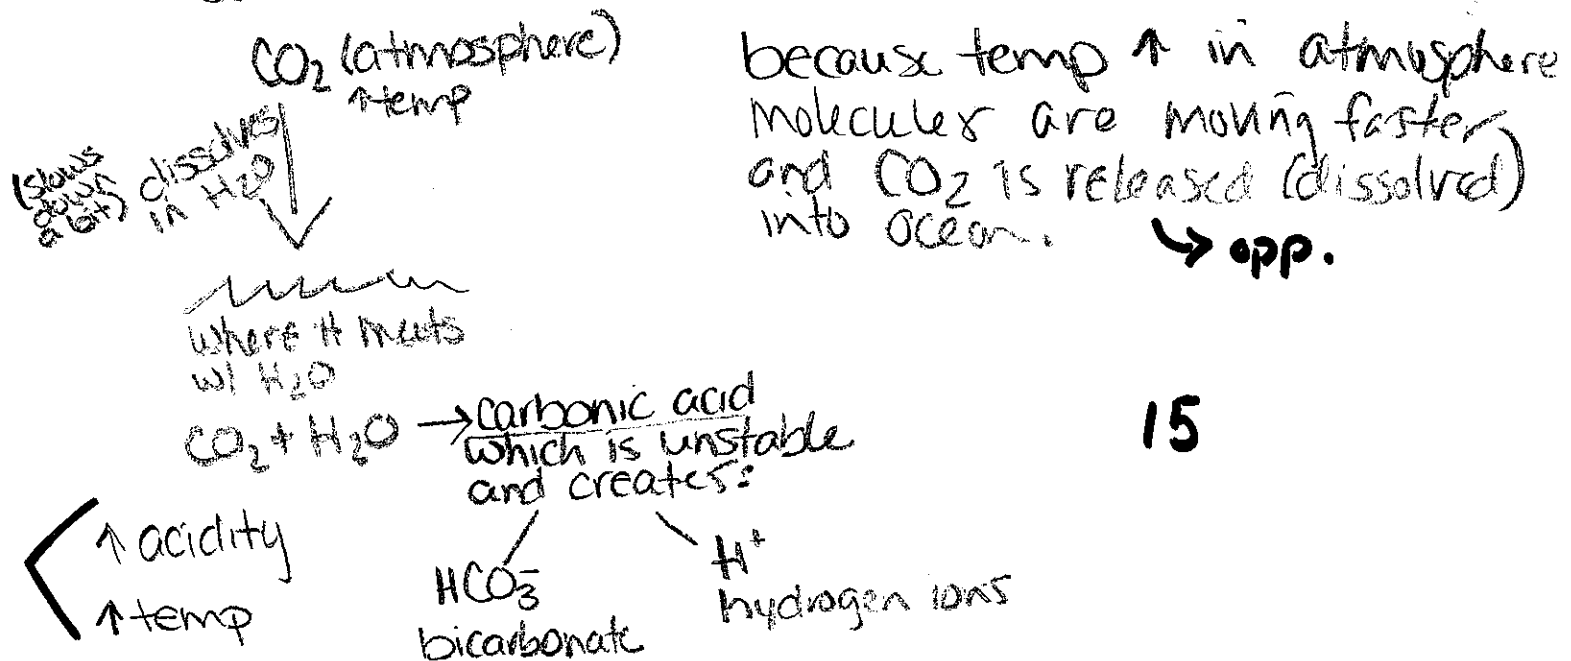 CO₂ (atmosphere)
↑temp
dissolves
in H₂O
(slows
down
a bit)
where it meets
w/ H₂O
CO₂ + H₂O → carbonic acid
which is unstable
and creates:
HCO₃⁻
bicarbonate
H⁺
hydrogen ions
↑ acidity
↑ temp
because temp ↑ in atmosphere
molecules are moving faster
and CO₂ is released (dissolved)
into ocean.
↳ opp.
15